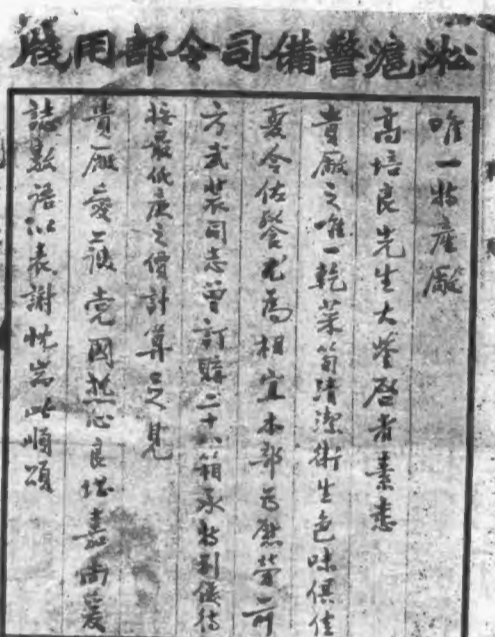 淞滬警備司令部用牋
唯一特產廠
高培良先生大鑒啓者素悉
貴廠之唯一乾菜筍清潔衛生色味俱佳
夏令佐餐尤為相宜本部為慰勞前
方武裝同志曾訂購二十八箱承特別優待
按最低廉之價計算足見
貴廠愛護党國熱心良堪嘉尚爰
誌數語以表謝忱耑此順頌